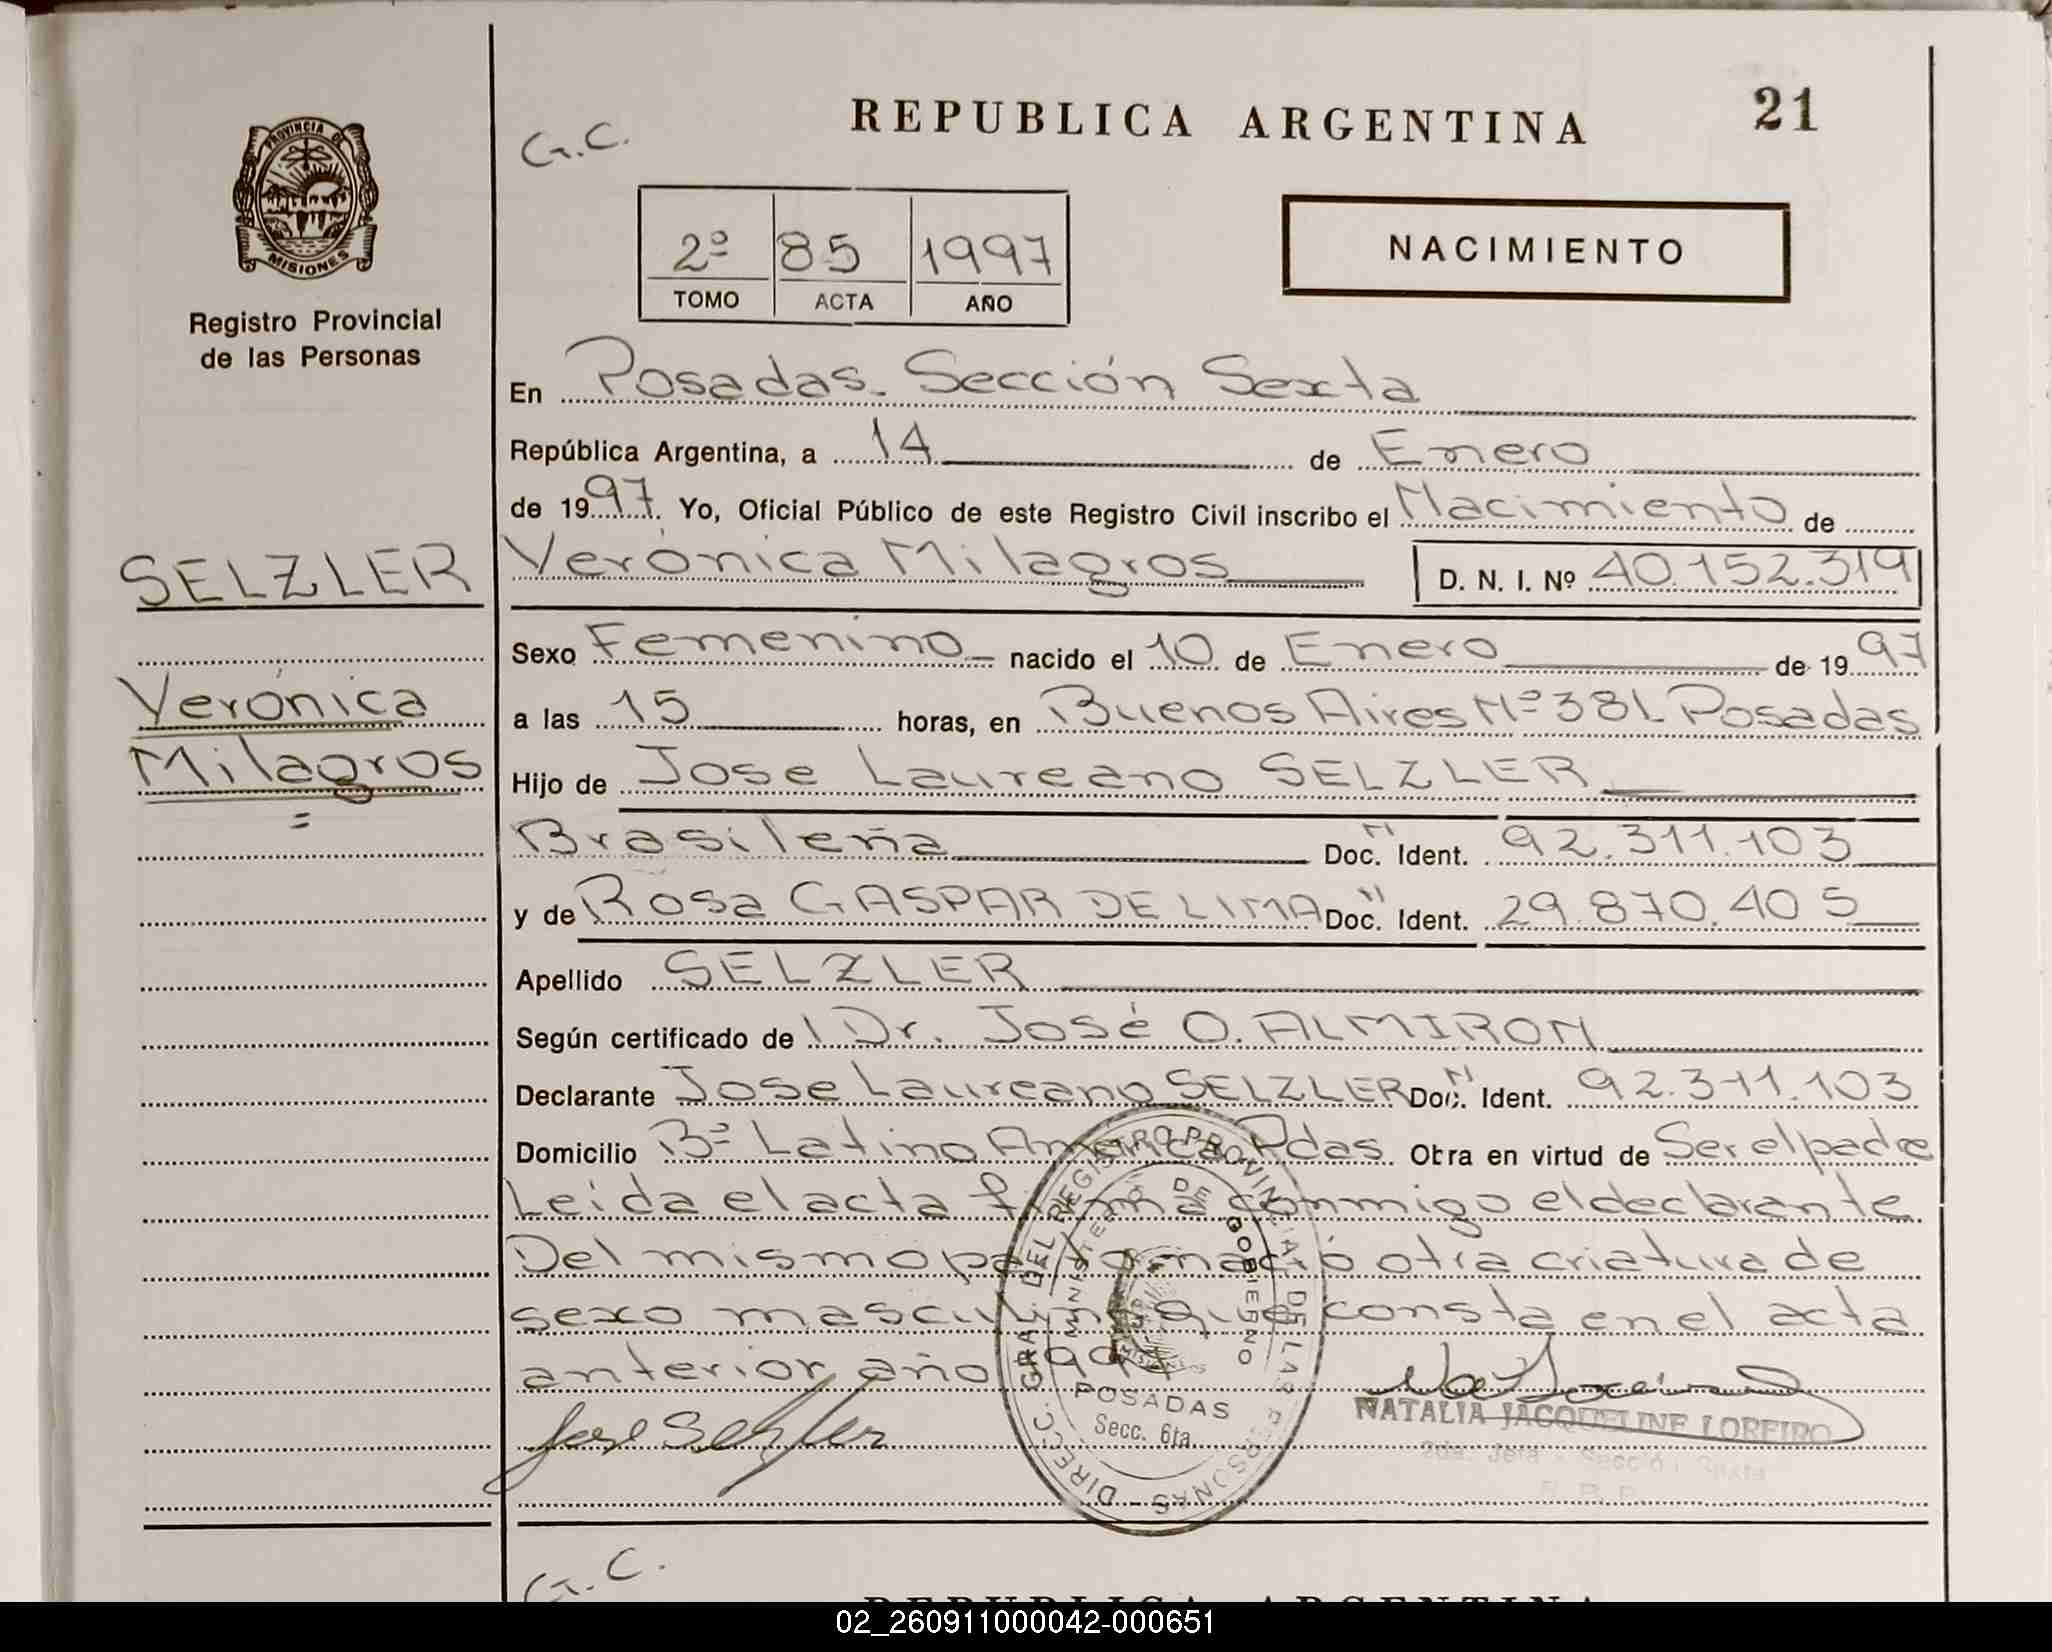 REPUBLICA ARGENTINA
21
G.C.
PROVINCIA DE
MISIONES
Registro Provincial
de las Personas
2º 85 1997
TOMO ACTA AÑO
NACIMIENTO
En Posadas. Sección Sexta
República Argentina, a 14 de Enero
de 1997. Yo, Oficial Público de este Registro Civil inscribo el Nacimiento de
SELZLER
Verónica Milagros D. N. I. Nº 40.152.319
Sexo Femenino nacido el 10 de Enero de 1997
Verónica
a las 15 horas, en Buenos Aires Nº 381. Posadas
Milagros
Hijo de Jose Laureano SELZLER
Brasileña Doc. Ident. 92.311.103
y de Rosa GASPAR DE LIMA Doc. Ident. 29.870.405
Apellido SELZLER
Según certificado de l Dr. José O. ALMIRON
Declarante Jose Laureano SELZLER Doc. Ident. 92.311.103
Domicilio Bº Latino America Pdas. Obra en virtud de Ser el padre
Leida el acta firma conmigo el declarante
Del mismo parto nació otra criatura de
sexo masculino que consta en el acta
anterior año 1997
Jose Selzler
NATALIA JACQUELINE LOREIRO
2da. Jefa - Sección Sexta
R. P. P.
DIRECC. GRAL. DEL REGISTRO PROVINCIAL DE LAS PERSONAS -
MINISTERIO DE GOBIERNO
MISIONES
POSADAS
Secc. 6ta.
G.C.
REPUBLICA ARGENTINA
02_260911000042-000651